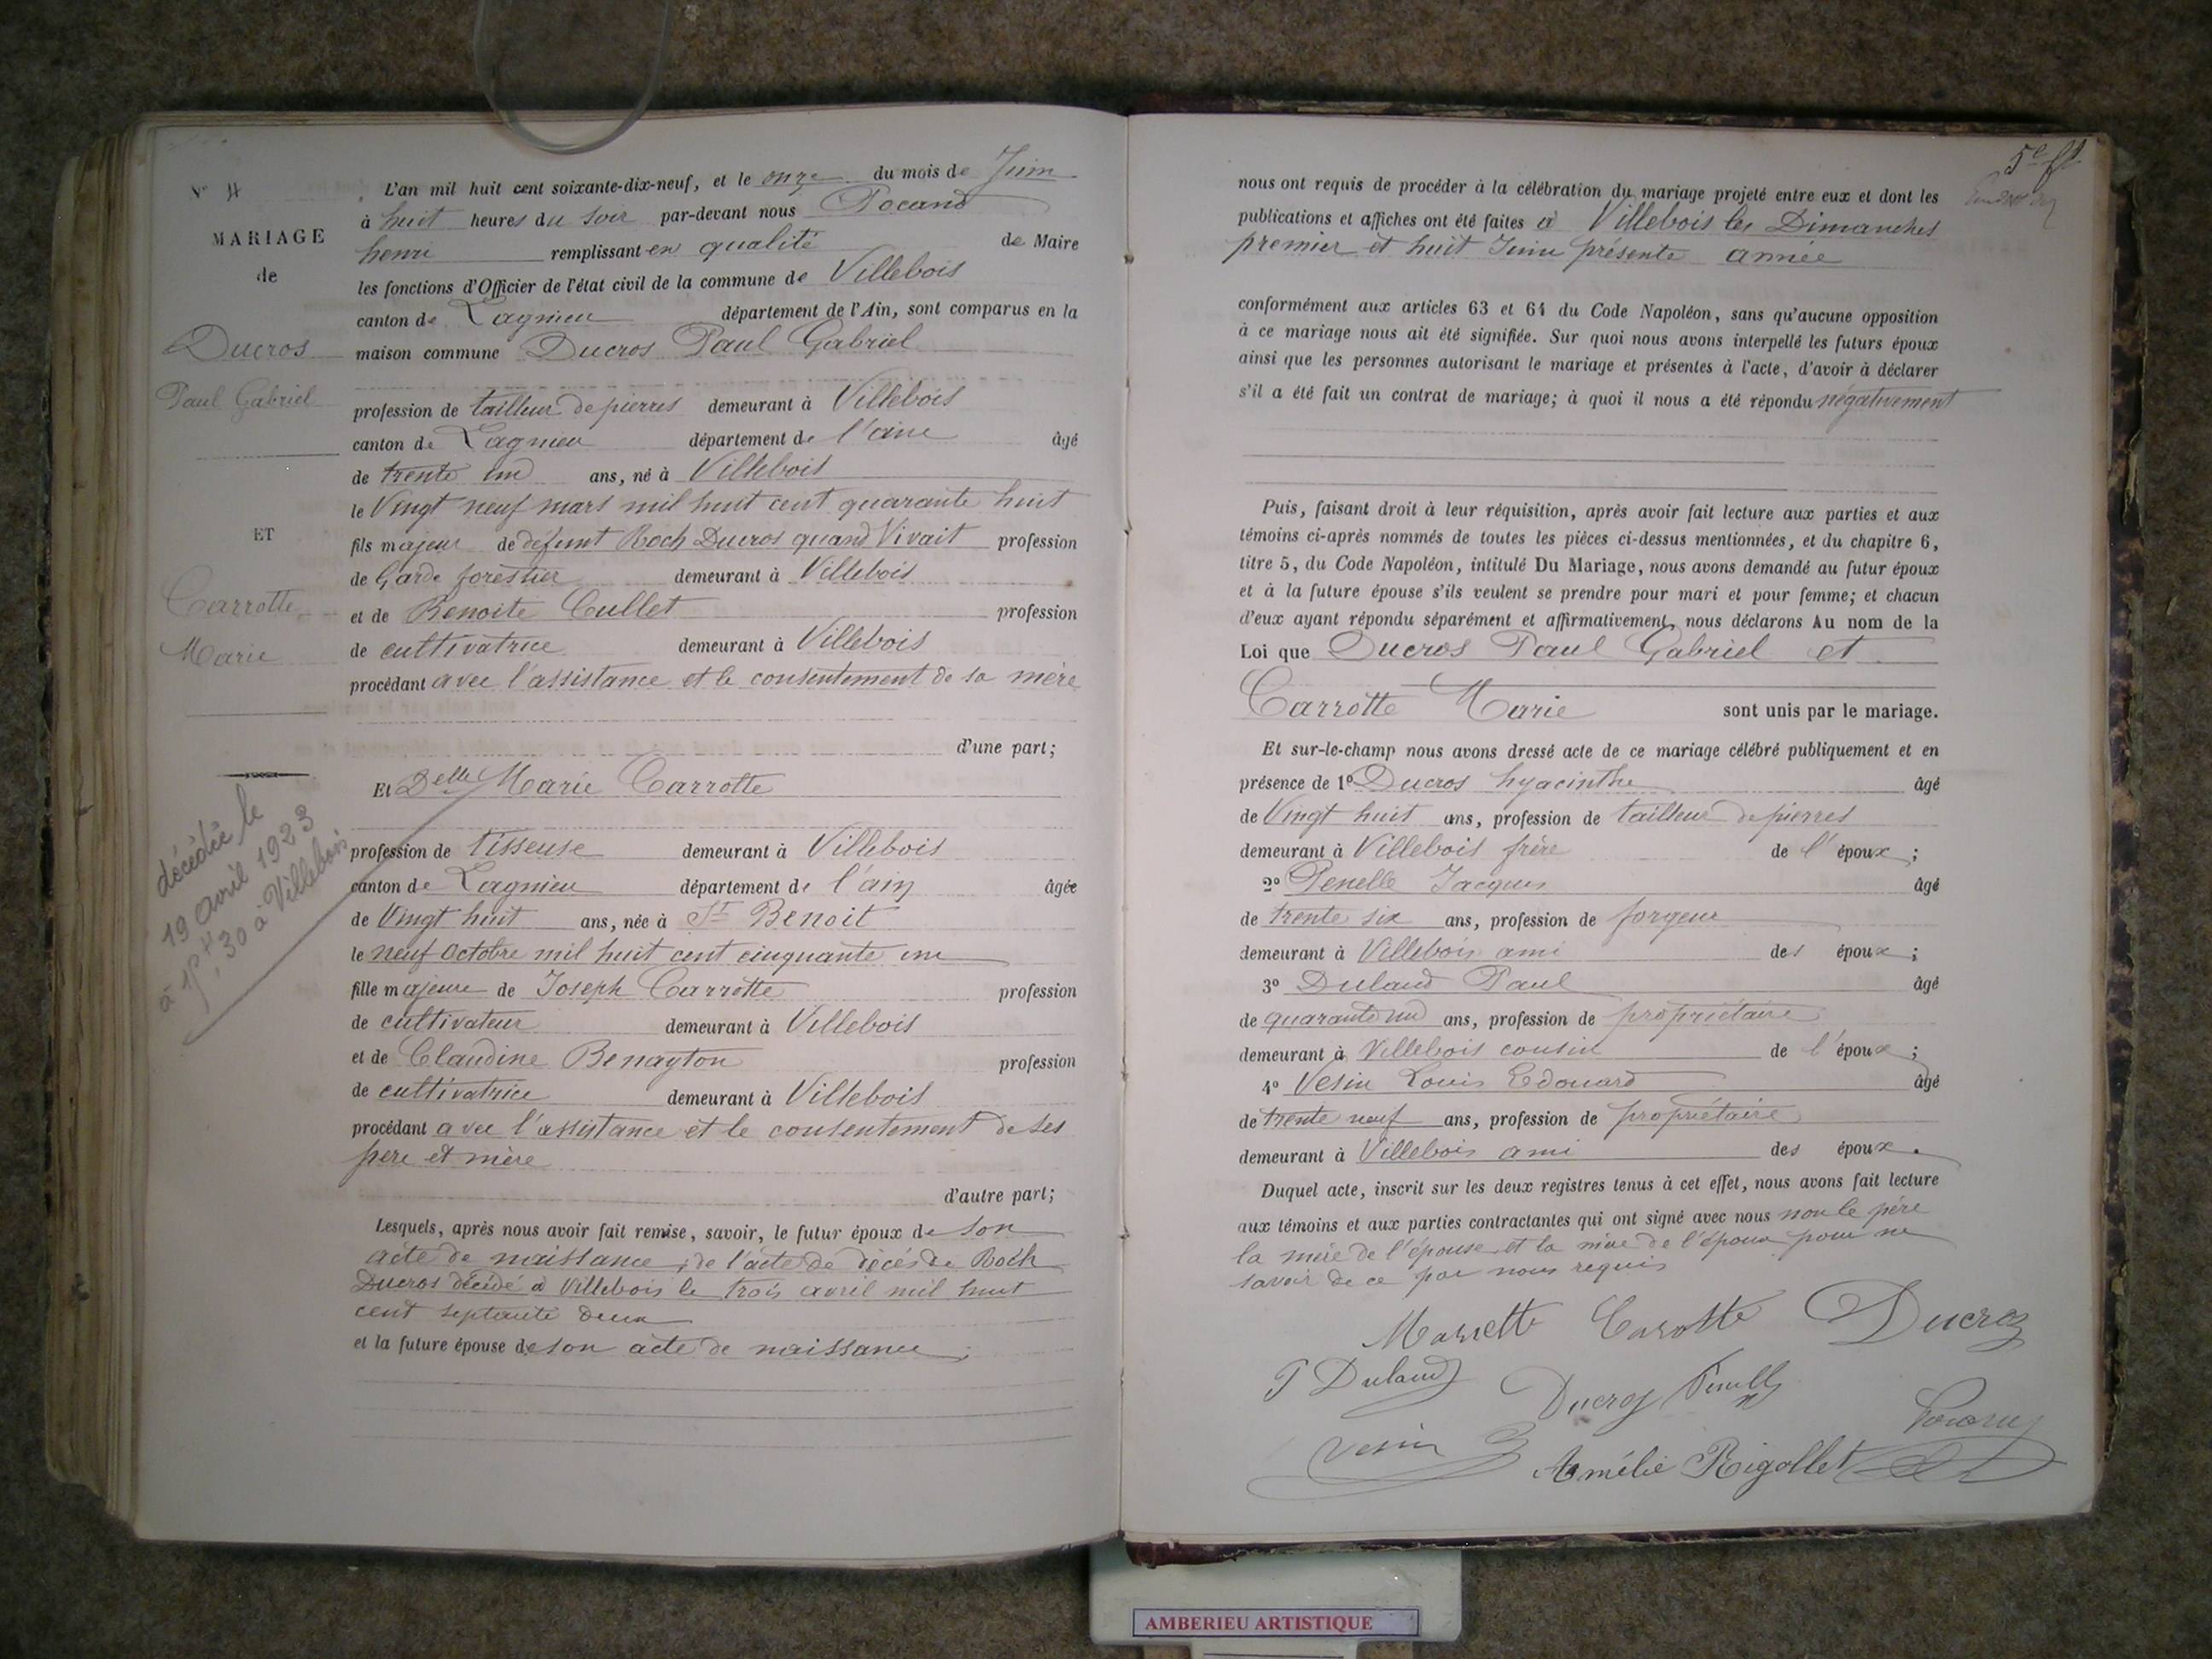 N° 4
MARIAGE
de
Ducros
Paul Gabriel
ET
Carrotte
Marie
décédée le
19 avril 1923
à 1 h 30 à Villebois
L'an mil huit cent soixante-dix-neuf, et le onze du mois de Juin
à huit heures du soir par-devant nous Pocand
henri remplissant en qualité de Maire
les fonctions d'Officier de l'état civil de la commune de Villebois
canton de Lagnieu département de l'Ain, sont comparus en la
maison commune Ducros Paul Gabriel
profession de tailleur de pierres demeurant à Villebois
canton de Lagnieu département de l'ain âgé
de trente un ans, né à Villebois
le Vingt neuf mars mil huit cent quarante huit
fils majeur de défunt Roch Ducros quand Vivait profession
de Garde forestier demeurant à Villebois
et de Benoite Cullet profession
de cultivatrice demeurant à Villebois
procédant avec l'assistance et le consentement de sa mère
d'une part;
Et Delle Marie Carrotte
profession de tisseuse demeurant à Villebois
canton de Lagnieu département de l'ain âgée
de Vingt huit ans, née à St Benoit
le neuf Octobre mil huit cent cinquante un
fille majeure de Joseph Carrotte profession
de cultivateur demeurant à Villebois
et de Claudine Benayton profession
de cultivatrice demeurant à Villebois
procédant avec l'assistance et le consentement de ses
père et mère
d'autre part;
Lesquels, après nous avoir fait remise, savoir, le futur époux de son
acte de naissance, de l'acte de décès de Roch
Ducros décédé à Villebois le trois avril mil huit
cent septante deux
et la future épouse de son acte de naissance;
5e ft
nous ont requis de procéder à la célébration du mariage projeté entre eux et dont les
publications et affiches ont été faites à Villebois les Dimanches
premier et huit Juin présente année
conformément aux articles 63 et 64 du Code Napoléon, sans qu'aucune opposition
à ce mariage nous ait été signifiée. Sur quoi nous avons interpellé les futurs époux
ainsi que les personnes autorisant le mariage et présentes à l'acte, d'avoir à déclarer
s'il a été fait un contrat de mariage; à quoi il nous a été répondu négativement
Puis, faisant droit à leur réquisition, après avoir fait lecture aux parties et aux
témoins ci-après nommés de toutes les pièces ci-dessus mentionnées, et du chapitre 6,
titre 5, du Code Napoléon, intitulé Du Mariage, nous avons demandé au futur époux
et à la future épouse s'ils veulent se prendre pour mari et pour femme; et chacun
d'eux ayant répondu séparément et affirmativement, nous déclarons Au nom de la
Loi que Ducros Paul Gabriel et
Carrotte Marie sont unis par le mariage.
Et sur-le-champ nous avons dressé acte de ce mariage célébré publiquement et en
présence de 1° Ducros hyacinthe âgé
de Vingt huit ans, profession de tailleur de pierres
demeurant à Villebois frère de l'époux;
2° Penelle Jacques âgé
de trente six ans, profession de forgeur
demeurant à Villebois ami des époux;
3° Duland Paul âgé
de quarante un ans, profession de propriétaire
demeurant à Villebois cousin de l'époux;
4° Vesin Louis Edouard âgé
de trente neuf ans, profession de propriétaire
demeurant à Villebois ami des époux.
Duquel acte, inscrit sur les deux registres tenus à cet effet, nous avons fait lecture
aux témoins et aux parties contractantes qui ont signé avec nous non le père
la mère de l'épouse et la mère de l'époux pour ne
savoir de ce par nous requis
Mariette Carotte Ducroz
P Duland Ducroz
Vesin Amélie Rigollet
AMBERIEU ARTISTIQUE